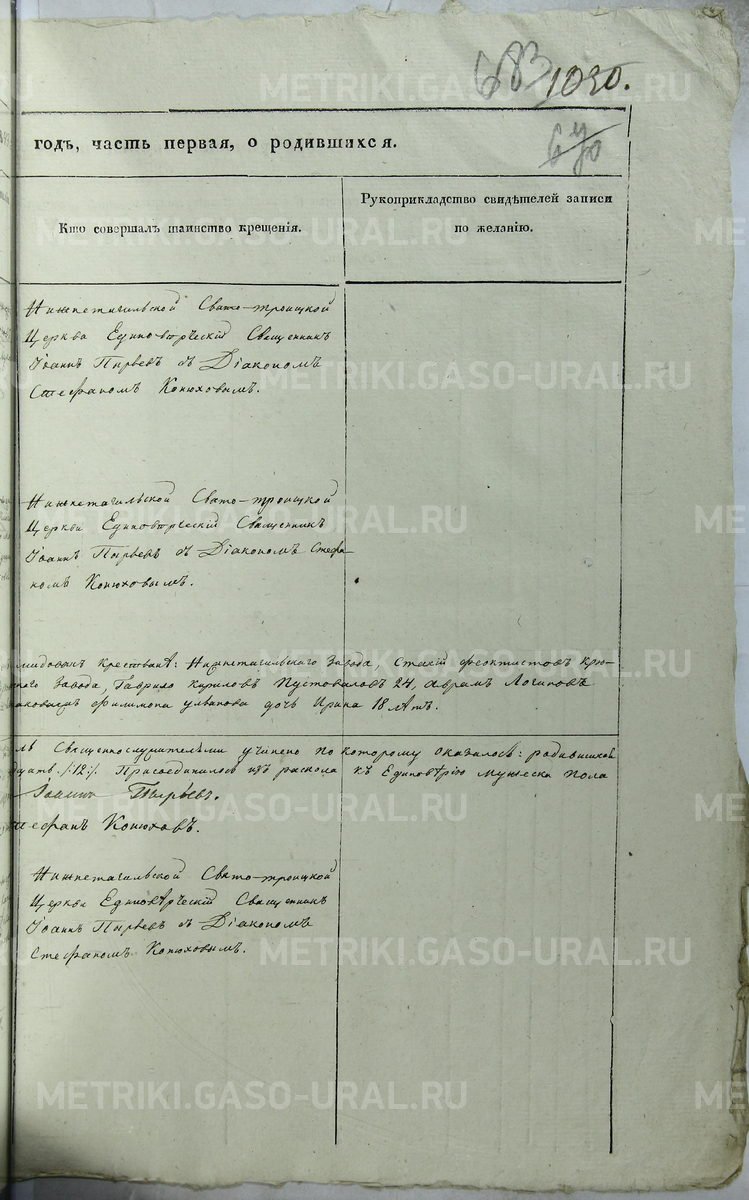 683 1030.
670
годъ, часть первая, о родившихся.
Кто совершалъ таинство крещенія.
Рукоприкладство свидѣтелей записи
по желанію.
Нижнетагильской Свято-троицкой
Церкви Единовѣрческій Священникъ
Іоаннъ Пырьевъ съ Діакономъ
Стефаномъ Конюховымъ.
Нижнетагильской Свято-троицкой
Церкви Единовѣрческій Священникъ
Іоаннъ Пырьевъ съ Діакономъ Стефа-
номъ Конюховымъ.
крестьяне: Нижнетагильскаго Завода,
завода, Гаврило Кириловъ Пустоваловъ 24, Аврамъ Логиновъ
Филимона дочь Ирина 18 лѣтъ.
Священнослужителями учинено по которому оказалось: родившихся
/:12:/ Присоединилось изъ раскола къ Единовѣрію Мужеска пола
Іоаннъ Пырьевъ.
Стефанъ Конюховъ.
Нижнетагильской Свято-троицкой
Церкви Единовѣрческій Священникъ
Іоаннъ Пырьевъ съ Діакономъ
Стефаномъ Конюховымъ.
METRIKI.GASO-URAL.RU